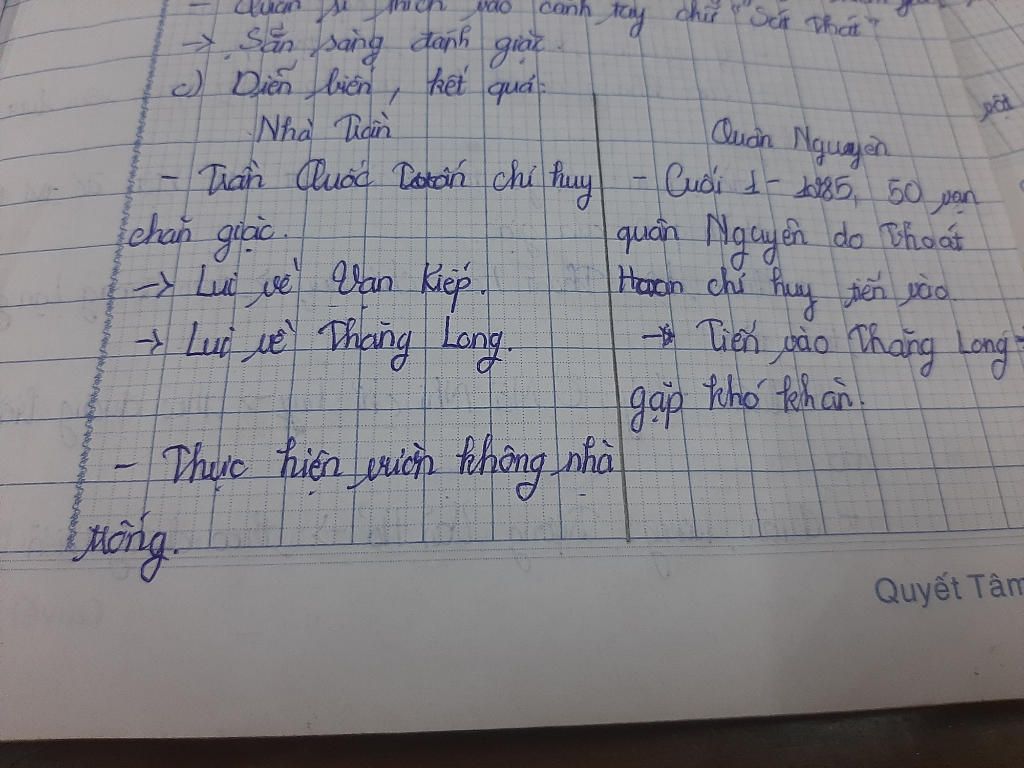 - Quân sĩ thích vào cánh tay chữ "Sát Thát"
→ Sẵn sàng đánh giặc.
c) Diễn biến, kết quả:
Nhà Trần
- Trần Quốc Tuấn chỉ huy
chặn giặc.
→ Lui về Vạn Kiếp.
→ Lui về Thăng Long.
- Thực hiện vườn không nhà
trống.
Quân Nguyên
- Cuối 1- 1285, 50 vạn
quân Nguyên do Thoát
Hoan chỉ huy tiến vào
→ Tiến vào Thăng Long
gặp khó khăn.
Quyết Tâm